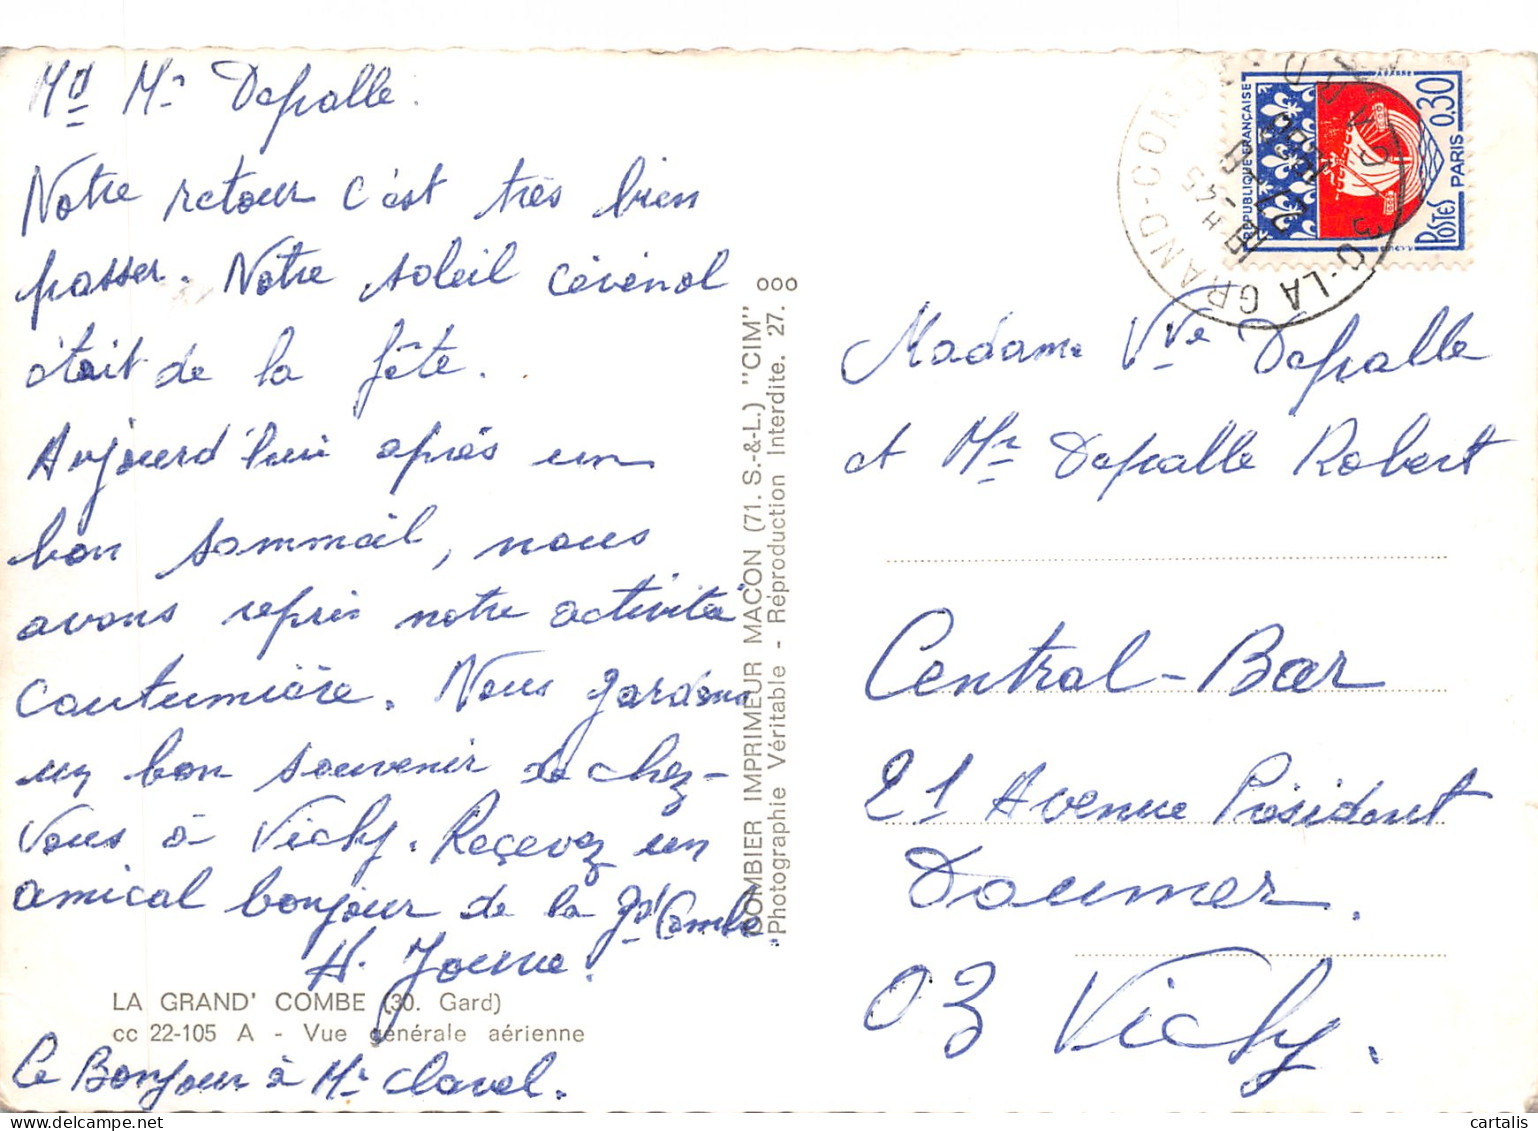 Md Mr Depalle.
Notre retour c'est très bien
passer. Notre soleil cévenol
était de la fête.
Aujourd'hui après un
bon sommeil, nous
avons repris notre activité
coutumière. Nous gardons
un bon souvenir de chez-
vous à Vichy. Recevez un
amical bonjour de la Gd Combe.
LA GRAND' COMBE (30. Gard)
cc 22-105 A - Vue générale aérienne
Le Bonjour à Mr Clavel.
COMBIER IMPRIMEUR MACON (71. S.-&-L.) "CIM"
Photographie Véritable - Reproduction Interdite. 27. 000
30-LA GRAND-COMBE
GARD
RÉPUBLIQUE FRANÇAISE
0,30
POSTES PARIS
Madame Vve Depalle
et Mr Depalle Robert
Central-Bar
21 Avenue Président
Doumer.
03 Vichy.
cartalis